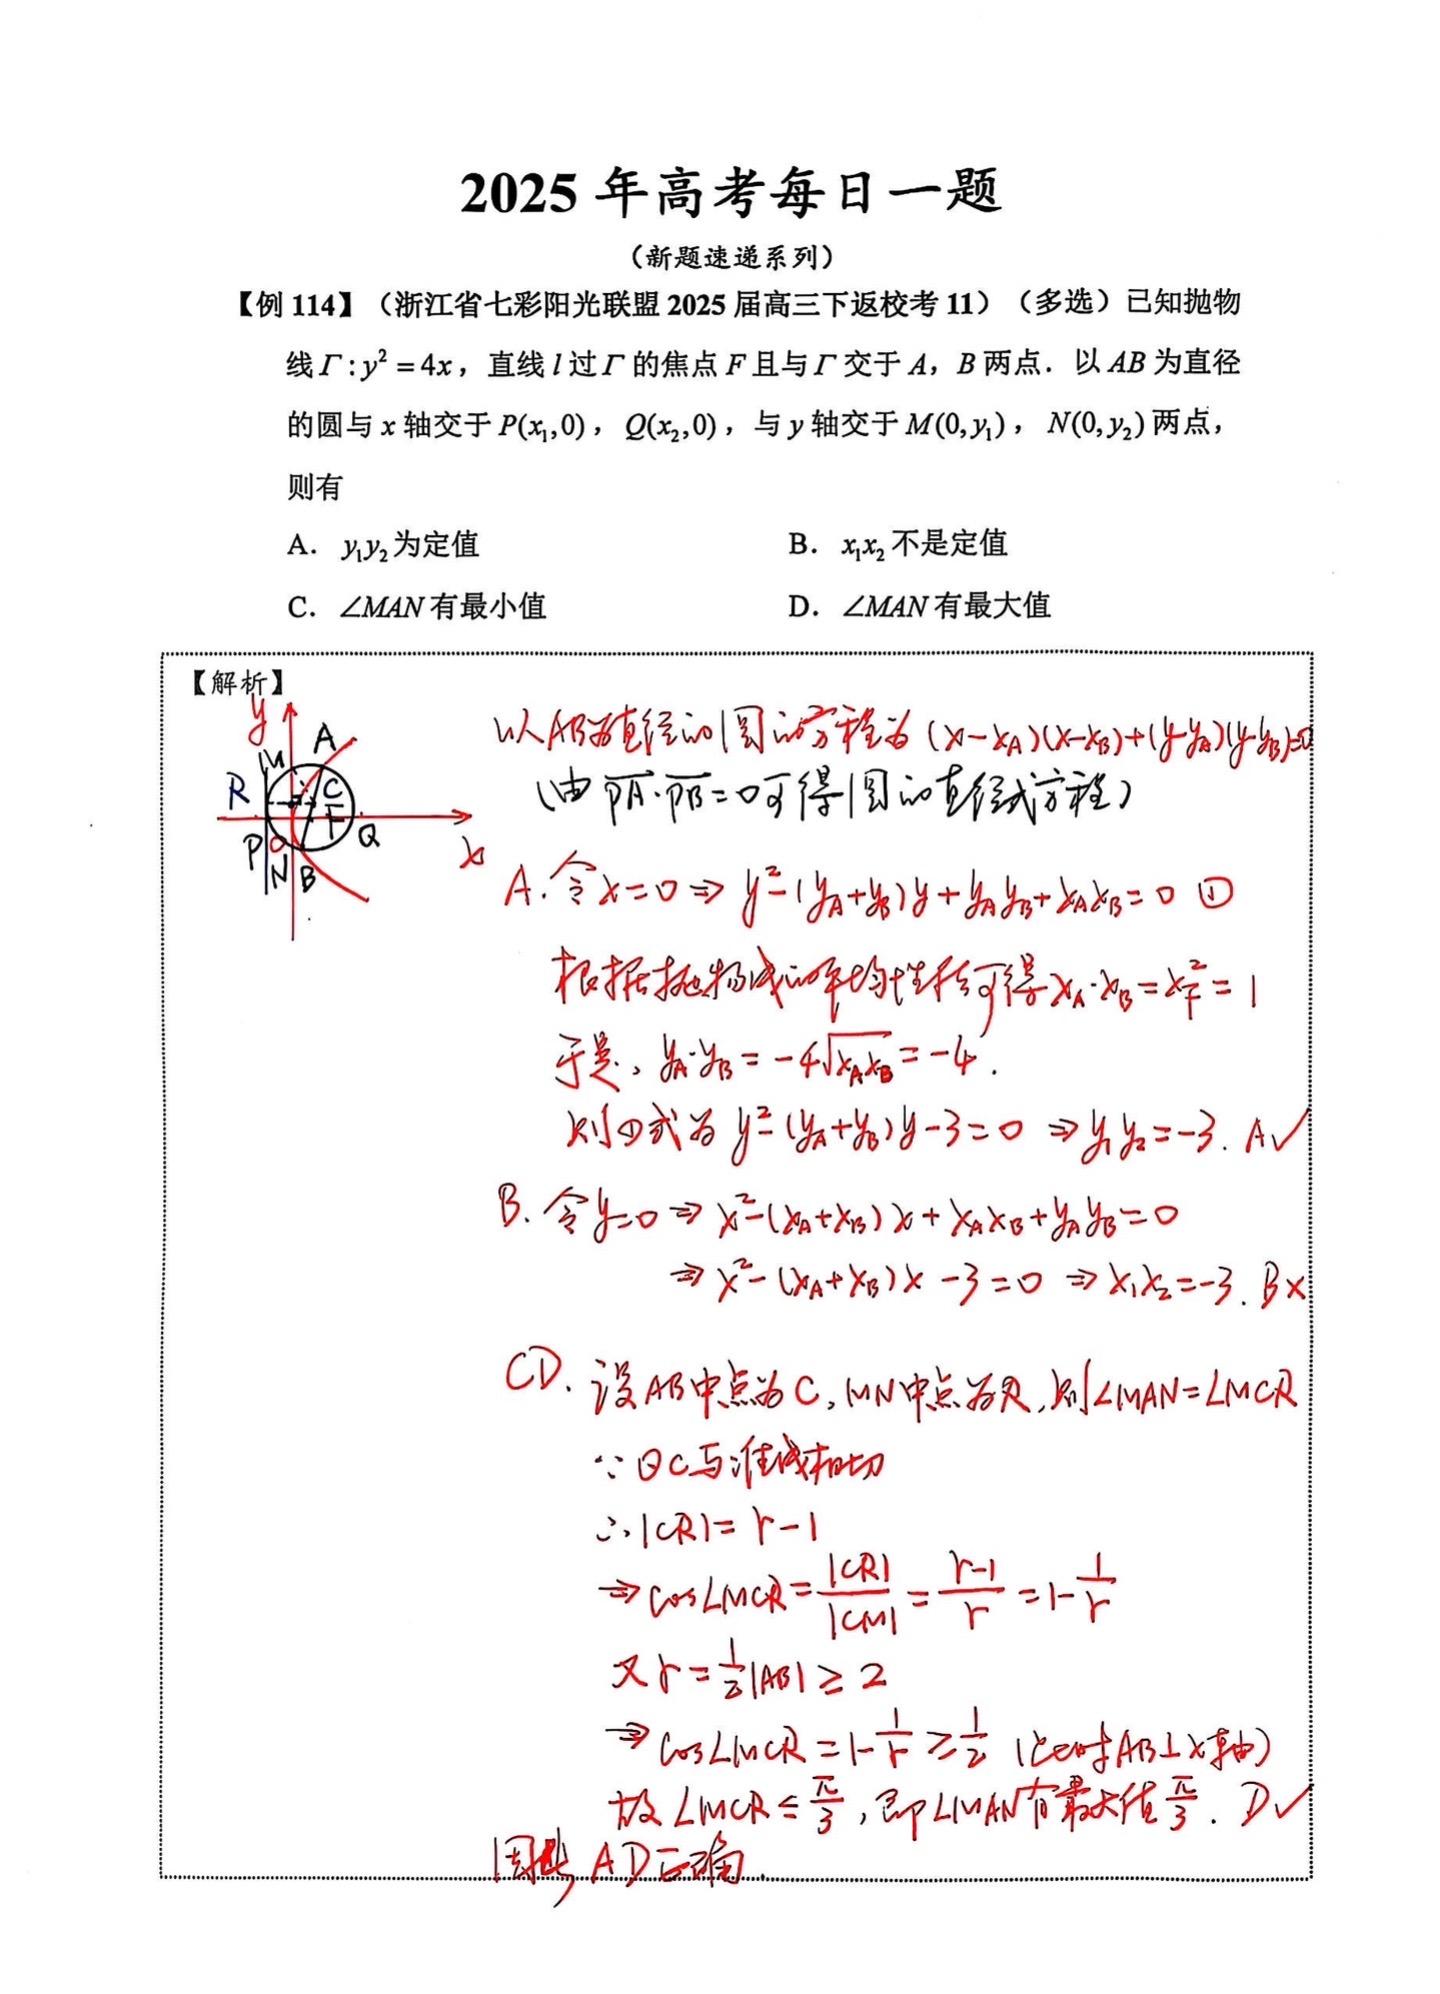 2025年高考每日一题
（新题速递系列）
【例114】（浙江省七彩阳光联盟2025届高三下返校考11）（多选）已知抛物
线Γ:y²=4x，直线l过Γ的焦点F且与Γ交于A，B两点．以AB为直径
的圆与x轴交于P(x₁,0)，Q(x₂,0)，与y轴交于M(0,y₁)，N(0,y₂)两点，
则有
A．y₁y₂为定值 B．x₁x₂不是定值
C．∠MAN有最小值 D．∠MAN有最大值
【解析】
y
A
M
R
C
F
P
O
Q
x
N
B
以AB为直径的圆的方程为(x-x_A)(x-x_B)+(y-y_A)(y-y_B)=0
(由PA·PB=0可得圆的直径式方程)
A.令x=0⇒y²-(y_A+y_B)y+y_Ay_B+x_Ax_B=0 ①
根据抛物线的平均性质可得x_A·x_B=x_F²=1
于是,y_A·y_B=-4√x_Ax_B=-4.
则①式为y²-(y_A+y_B)y-3=0⇒y₁y₂=-3. A✓
B.令y=0⇒x²-(x_A+x_B)x+x_Ax_B+y_Ay_B=0
⇒x²-(x_A+x_B)x-3=0⇒x₁x₂=-3. B×
CD.设AB中点为C,MN中点为R,则∠MAN=∠MCR
∵⊙C与准线相切
∴|CR|=r-1
⇒cos∠MCR=|CR|/|CM|=(r-1)/r=1-1/r
又r=1/2|AB|≥2
⇒cos∠MCR=1-1/r≥1/2 (此时AB⊥x轴)
故∠MCR≤π/3,即∠MAN有最大值π/3. D✓
因此,AD正确.